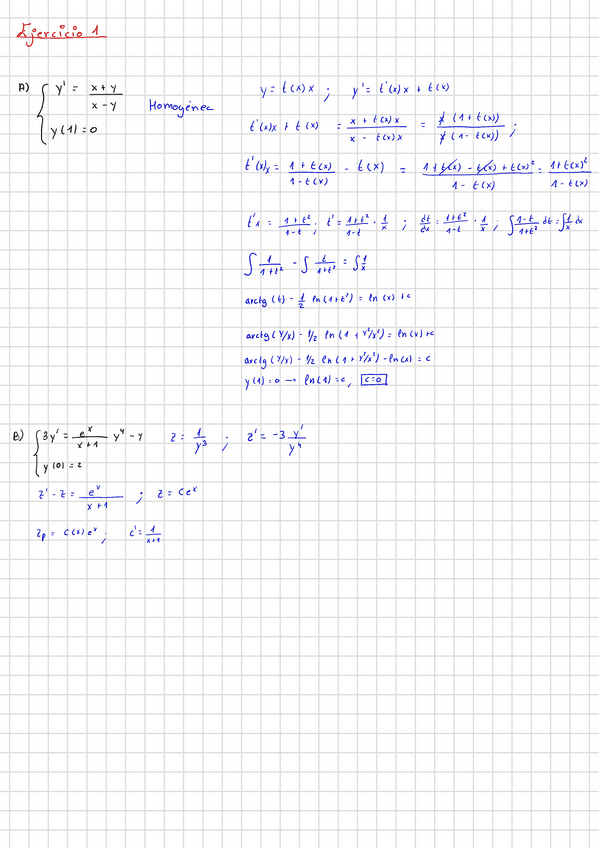 Ejercicio 1
A) { y' = (x + y)/(x - y)
y(1) = 0
Homogénea
y = t(x)x ; y' = t'(x)x + t(x)
t'(x)x + t(x) = (x + t(x)x)/(x - t(x)x) = (x(1 + t(x)))/(x(1 - t(x))) ;
t'(x)x = (1 + t(x))/(1 - t(x)) - t(x) = (1 + t(x) - t(x) + t(x)²)/(1 - t(x)) = (1 + t(x)²)/(1 - t(x))
t'x = (1 + t²)/(1 - t) ; t' = (1 + t²)/(1 - t) · 1/x ; dt/dx = (1 + t²)/(1 - t) · 1/x ; ∫ (1 - t)/(1 + t²) dt = ∫ 1/x dx
∫ 1/(1 + t²) - ∫ t/(1 + t²) = ∫ 1/x
arctg(t) - 1/2 ln(1 + t²) = ln(x) + c
arctg(y/x) - 1/2 ln(1 + y²/x²) = ln(x) + c
arctg(y/x) - 1/2 ln(1 + y²/x²) - ln(x) = c
y(1) = 0 → ln(1) = c ; c = 0
B) { 3y' = e^x/(x + 1) y⁴ - y
y(0) = 2
z = 1/y³ ; z' = -3 y'/y⁴
z' - z = e^x/(x + 1) ; z = Ce^x
zp = C(x)e^x ; c' = 1/(x + 1)